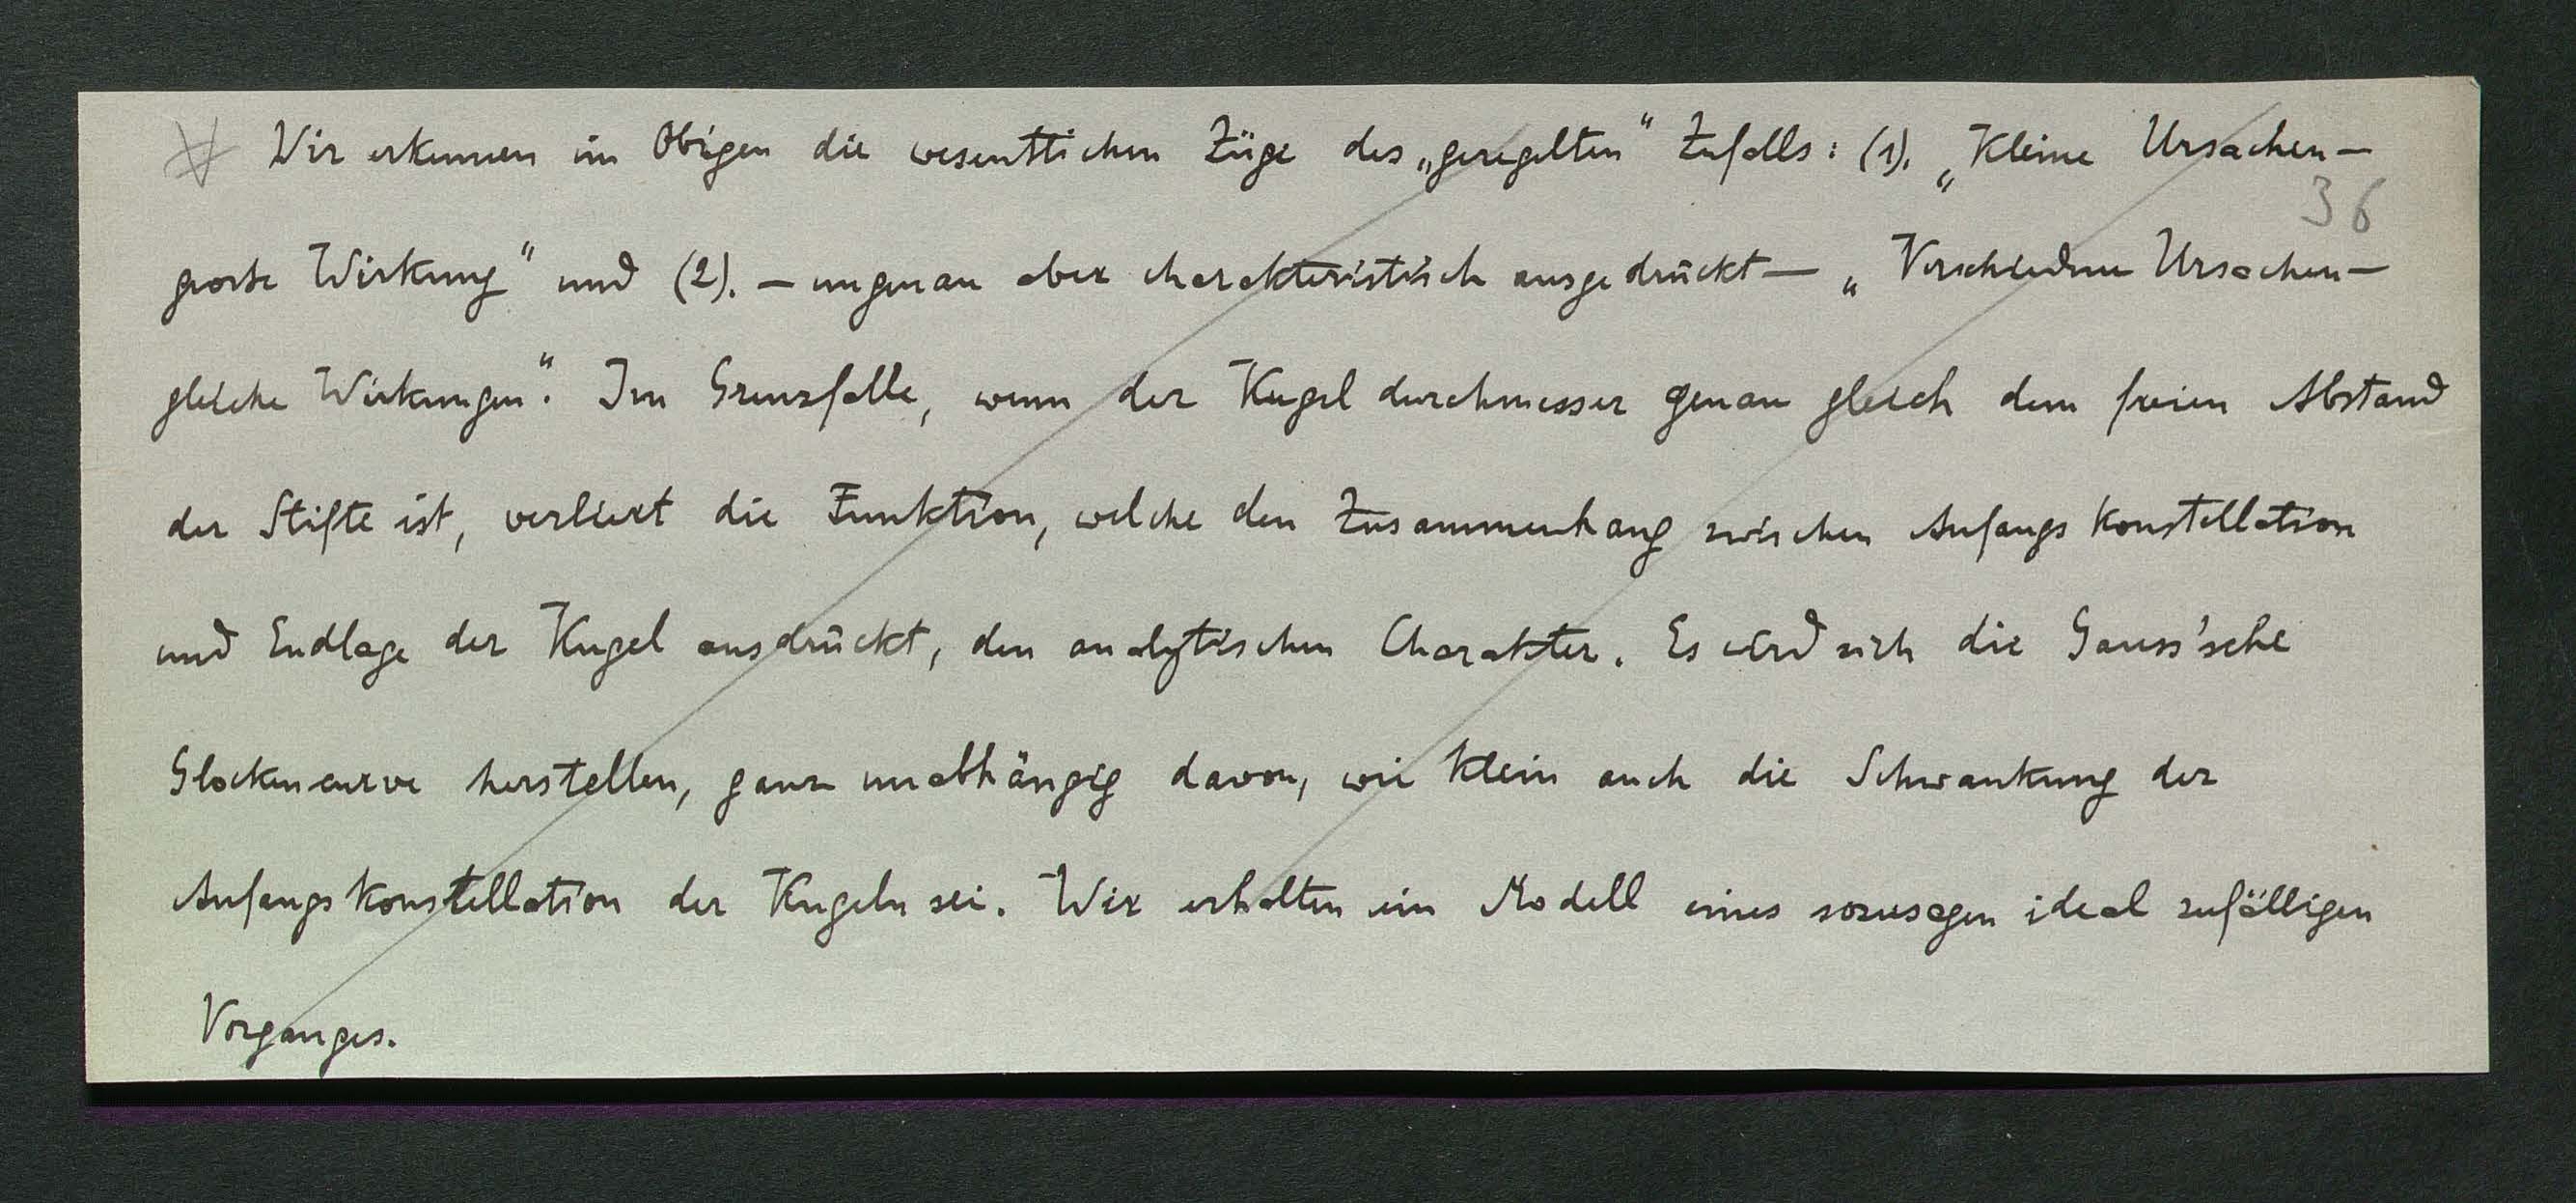 Wir erkennen im Obigen die wesentlichen Züge des „geregelten“ Zufalls: (1). „Kleine Ursachen —
36
grosse Wirkung“ und (2). — ungenau aber charakteristisch ausgedrückt — „Verschiedene Ursachen —
gleiche Wirkungen“. Im Grenzfalle, wenn der Kugeldurchmesser genau gleich dem freien Abstand
der Stifte ist, verliert die Funktion, welche den Zusammenhang zwischen Anfangskonstellation
und Endlage der Kugel ausdrückt, den analytischen Charakter. Es wird sich die Gauss'sche
Glockencurve herstellen, ganz unabhängig davon, wie klein auch die Schwankung der
Anfangskonstellation der Kugeln sei. Wir erhalten ein Modell eines sozusagen ideal zufälligen
Vorganges.